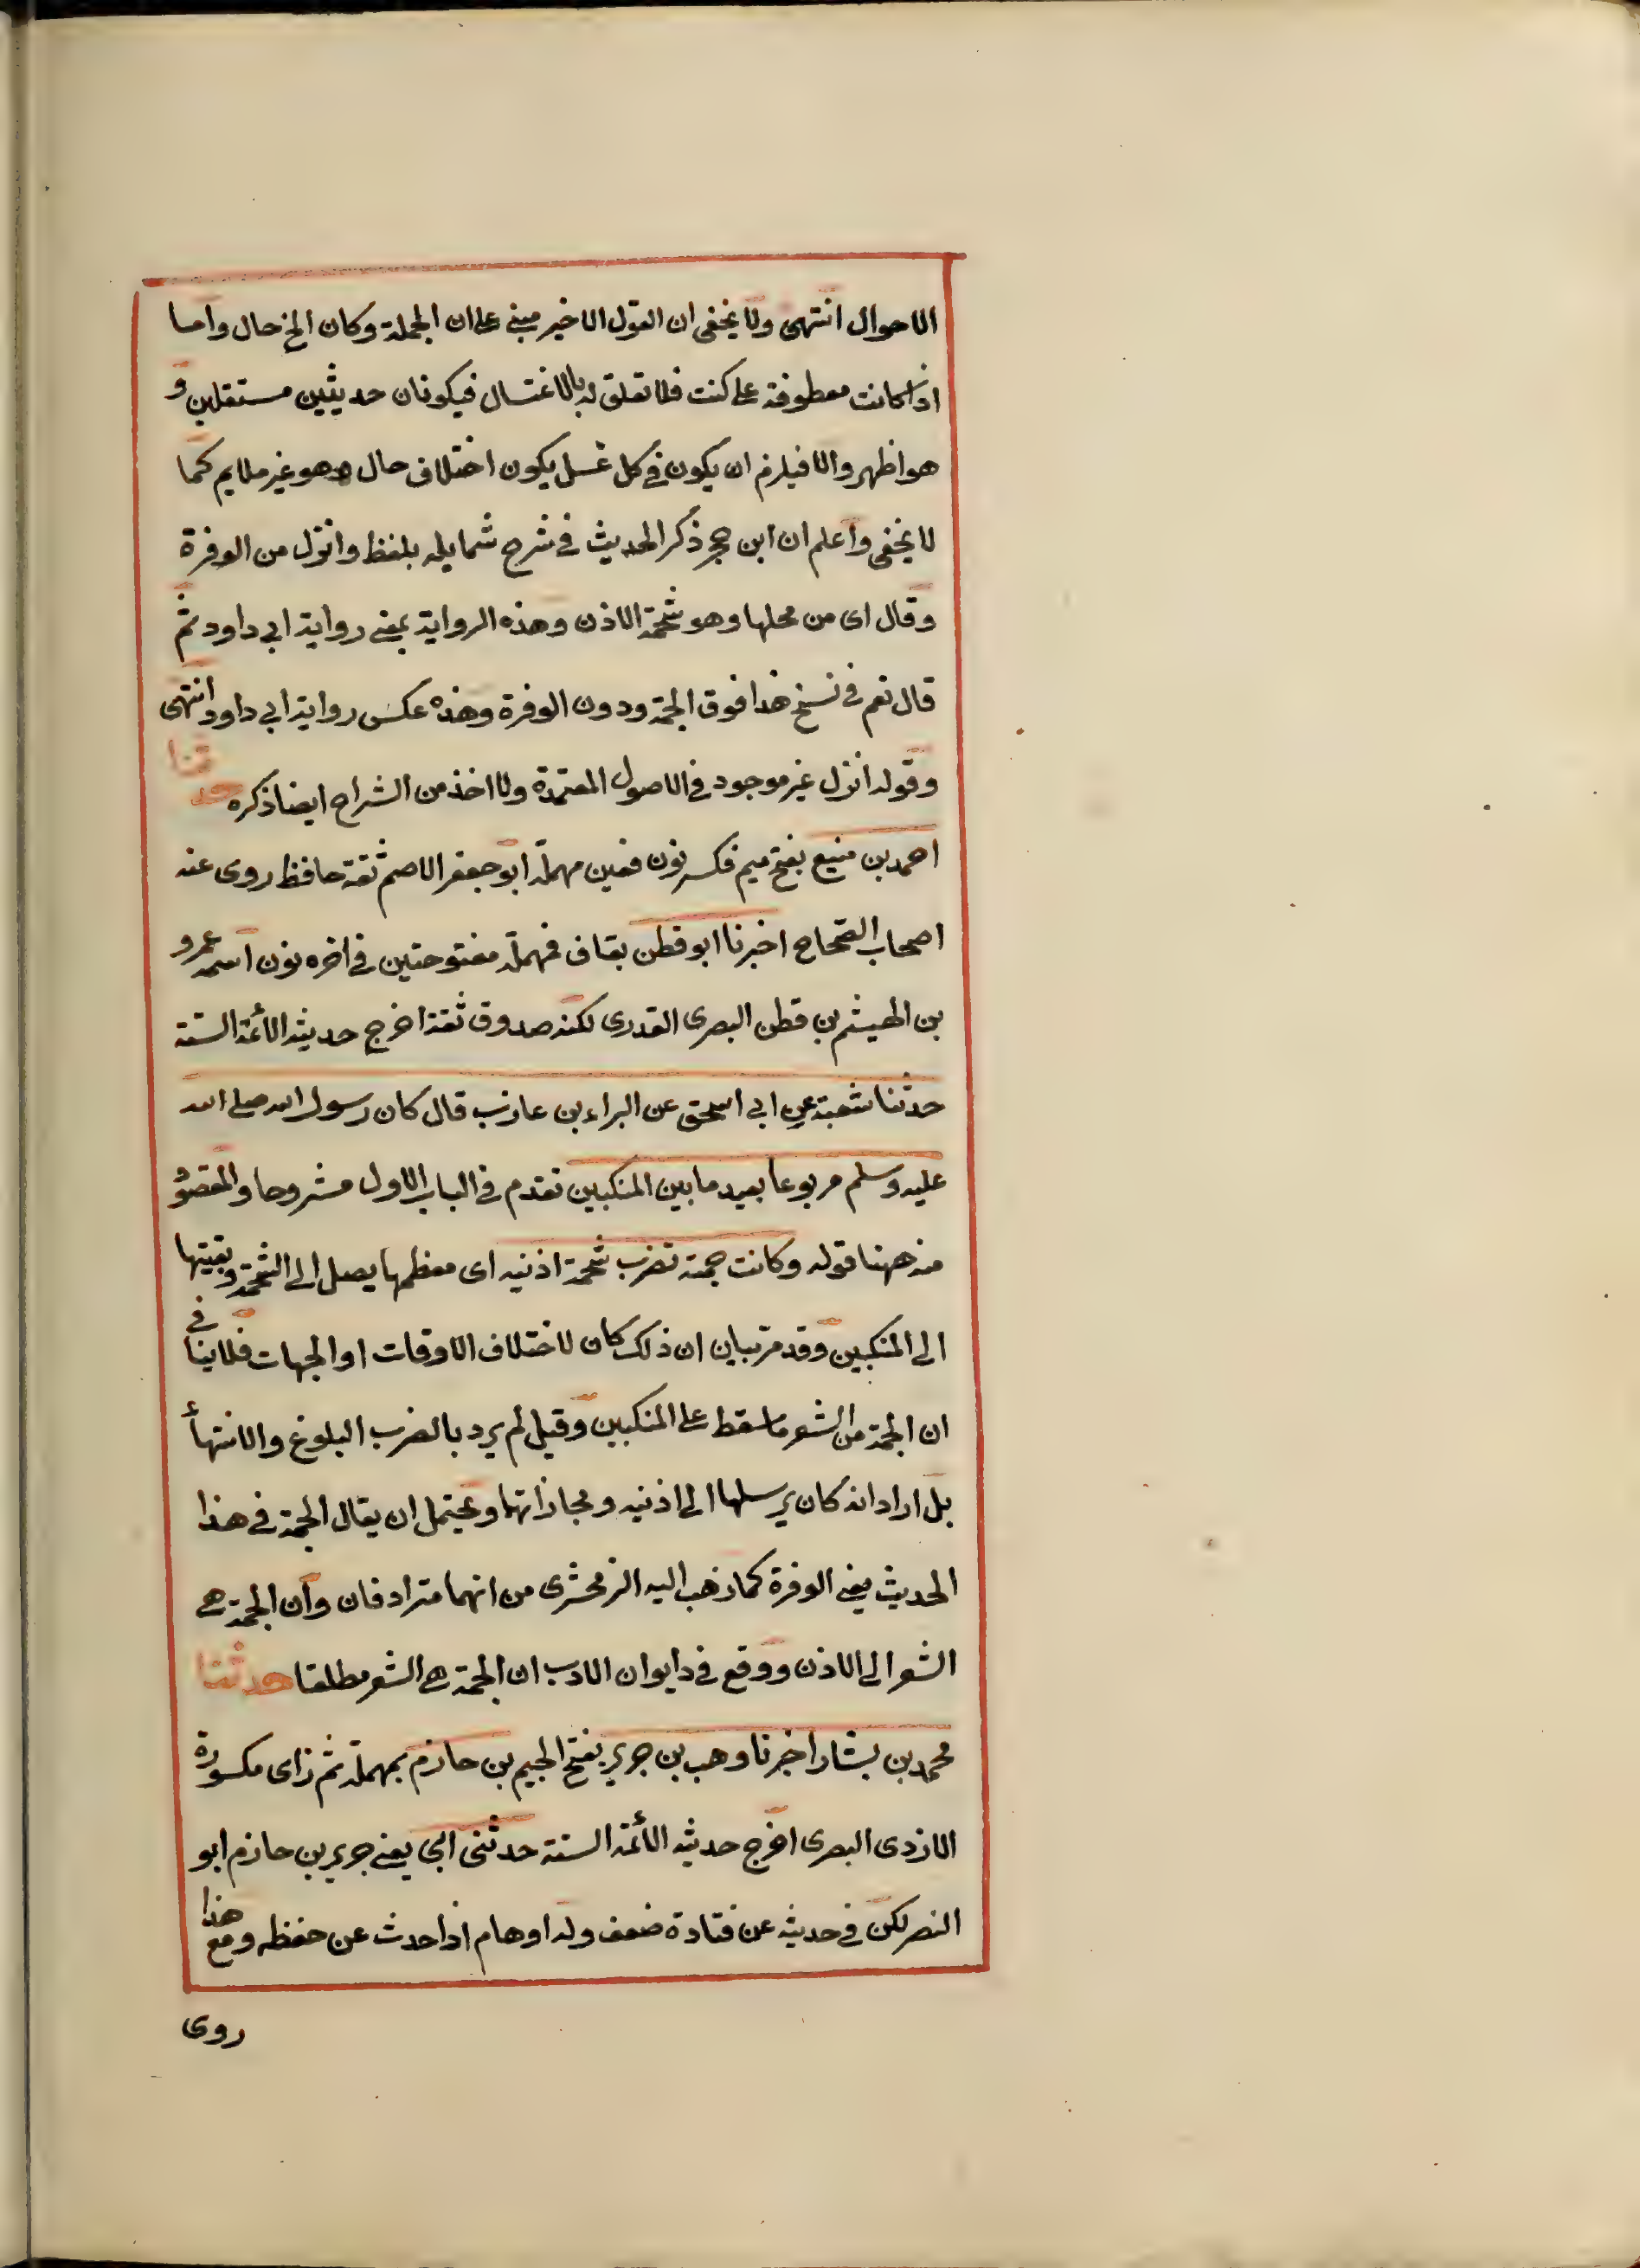 الاحوال انتهى ولا يخفى ان القول الاخير مبنى على ان الجملة وكان الخ حال واما
اذا كانت معطوفة على كنت فلا تعلق له بالاغتسال فيكونان حديثين مستقلين و
هو اظهر والا فيلزم ان يكون في كل غسل يكون اختلاف حال وهو غير ملايم كما
لا يخفى واعلم ان ابن حجر ذكر الحديث في شرح شمايله بلفظ وانزل من الوفرة
وقال اى من محلها وهو شحمة الاذن وهذه الرواية بمعنى رواية ابي داود ثم
قال نعم في نسخ هذا فوق الجمة ودون الوفرة وهذه عكس رواية ابي داود انتهى
وقوله انزل غير موجود في الاصول المعتمدة ولا اخذ من الشراح ايضا ذكره حدثنا
احمد بن منيع بفتح ميم فكسر نون فعين مهملة ابو جعفر الاصم ثقة حافظ روى عنه
اصحاب الصحاح اخبرنا ابو قطن بقاف فمهملة مفتوحتين في اخره نون اسمه عمرو
بن الهيثم بن قطن البصرى القدرى لكنه صدوق ثقة اخرج حديثه الأئمة الستة
حدثنا شعبة عن ابي اسحق عن البراء بن عازب قال كان رسول الله صلى الله
عليه وسلم مربوعا بعيد ما بين المنكبين تقدم في الباب الاول مشروحا والمقصود
منه ههنا قوله وكانت جمته تضرب شحمة اذنيه اى معظمها يصل الى الشحمة وبقيتها
الى المنكبين وقد مر بيان ان ذلك كان لاختلاف الاوقات او الجهات فلا ينافي
ان الجمة من الشعر ما سقط على المنكبين وقيل لم يرد بالضرب البلوغ والانتهأ
بل اراد انه كان يرسلها الى اذنيه ومحاذاتها ويحتمل ان يقال الجمة في هذا
الحديث بمعنى الوفرة كما ذهب اليه الزمخشرى من انهما مترادفان وان الجمة هي
الشعر الى الاذن ووقع في دايوان الادب ان الجمة هي الشعر مطلقا حدثنا
محمد بن بشار اخبرنا وهب بن جرير بفتح الجيم بن حازم بمهملة ثم زاى مكسورة
الازدى البصرى اخرج حديثه الأئمة الستة حدثنى ابي يعنى جرير بن حازم ابو
النصر لكن في حديثه عن قتادة ضعف وله اوهام اذا حدث عن حفظه ومع هذا
روى